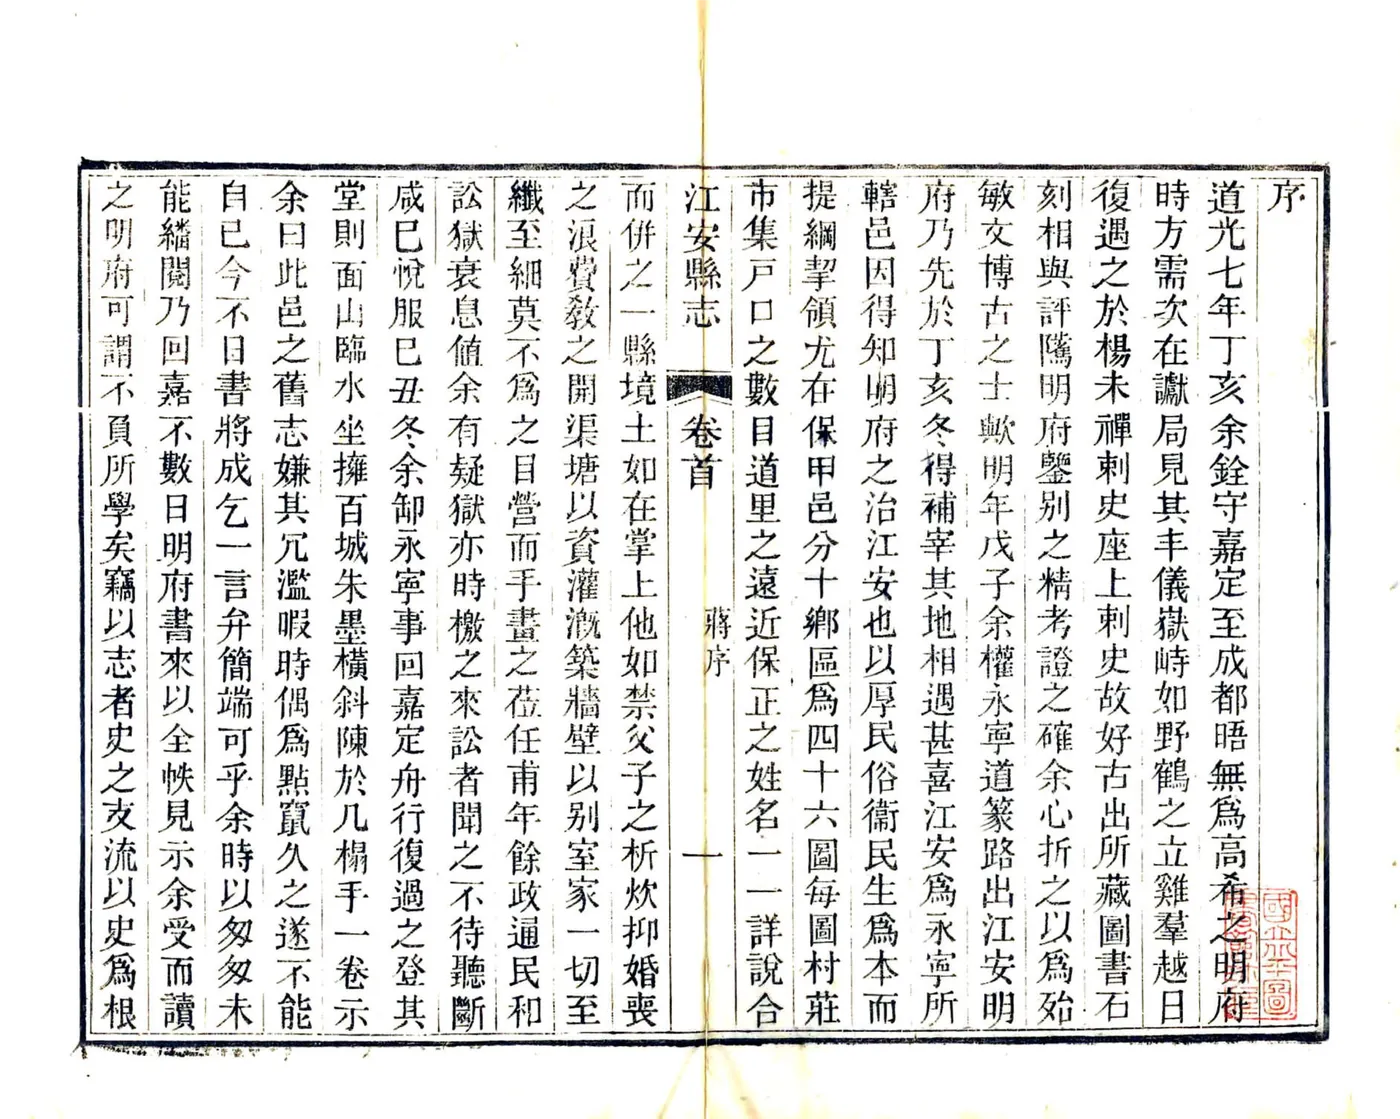 序
道光七年丁亥余銓守嘉定至成都晤無爲高希之明府
時方需次在讞局見其丰儀嶽峙如野鶴之立雞羣越日
復遇之於楊未禪刺史座上刺史故好古出所藏圖書石
刻相與評隲明府鑒别之精考證之確余心折之以爲殆
敏文博古之士歟明年戊子余權永寧道篆路出江安明
府乃先於丁亥冬得補宰其地相遇甚喜江安爲永寧所
轄邑因得知明府之治江安也以厚民俗衞民生爲本而
提綱挈領尤在保甲邑分十鄉區爲四十六圖每圖村莊
市集戸口之數目道里之遠近保正之姓名一一詳說合
江安縣志
卷首
蔣序
一
而併之一縣境土如在掌上他如禁父子之析炊抑婚喪
之浪費敎之開渠塘以資灌漑築牆壁以别室家一切至
纖至細莫不爲之目營而手畫之莅任甫年餘政通民和
訟獄衰息値余有疑獄亦時檄之來訟者聞之不待聽斷
咸已悅服已丑冬余卸永寧事回嘉定舟行復過之登其
堂則面山臨水坐擁百城朱墨橫斜陳於几榻手一卷示
余曰此邑之舊志嫌其冗濫暇時偶爲點竄久之遂不能
自已今不日書將成乞一言弁簡端可乎余時以匆匆未
能繙閱乃回嘉不數日明府書來以全帙見示余受而讀
之明府可謂不負所學矣竊以志者史之支流以史爲根